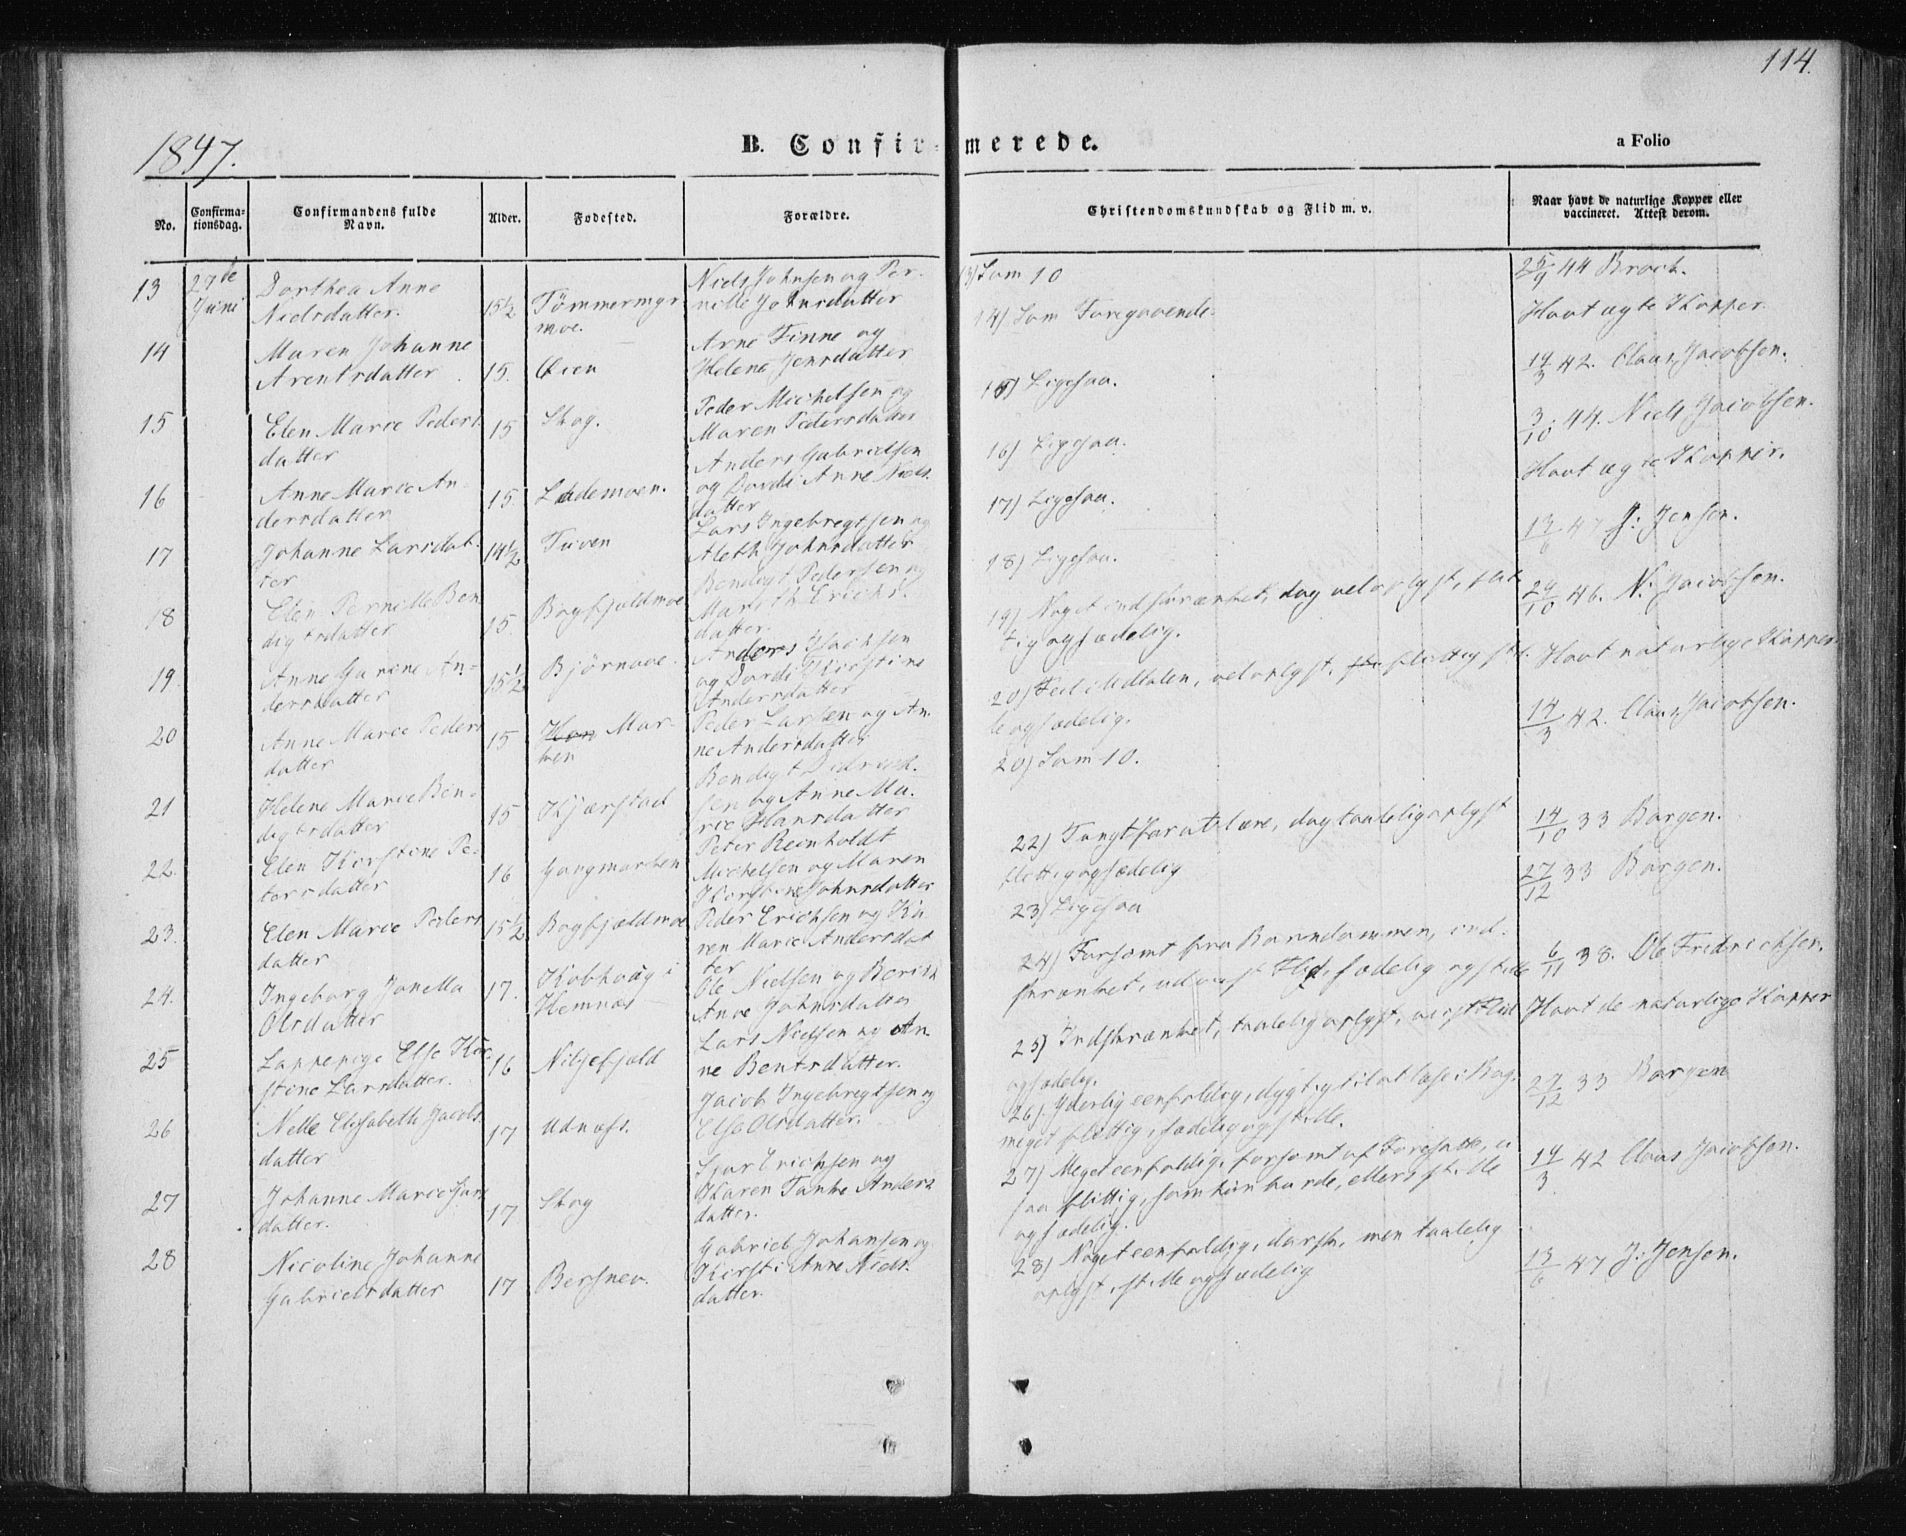 114.
1847.
B. Confirmerede.
a Folio
No.
Confirma-
tionsdag.
Confirmandens fulde
Navn.
Alder.
Fødested.
Forældre.
Christendomskundskab og Flid m. v.
Naar havt de naturlige Kopper eller
vaccineret. Attest derom.
13 27de Juni
Dorthea Anne
Nielsdatter.
15½
Tømmermyr
moe.
Niels Johnsen og Per-
nille Johnsdatter
13) Som 10
25/9 44 Broch.
14
Maren Johanne
Arentsdatter
15.
Øien
Arne Finne og
Helene Jensdatter
14) Som Foregaaende.
Havt ægte Kopper
15
Elen Marie Peders
datter
15
Skog.
Peder Michelsen og
Maren Pedersdatter
15) Ligesaa.
14/3 42. Claus Jacobsen.
16
Anne Marie An-
dersdatter
15
Ledemoen.
Anders Gabrielsen
og Dordi Anne Niels-
datter
16) Ligesaa.
3/10 44. Niels Jacobsen.
17
Johanne Larsdat-
ter
14½
Tuven
Lars Ingebregtsen og
Aleth Johnsdatter
17) Ligesaa.
Havt ægte Kopper.
18
Elen Pernille Ben
digtsdatter
15.
Bogfjeldmoe
Bendigt Pedersen og
Mareth Erichs-
datter.
18) Ligesaa.
13/6 47 J: Jensen.
19
Anne Garine An-
dersdatter
15½
Bjørnaae.
Anders Isachsen
og Dordi Kirstine
Andersdatter
19) Noget indskrænket, dog vel oplyst, flit
tig og sædelig.
24/10 46. N: Jacobsen.
20
Anne Marie Peders
datter
15
Mar-
ken
Peder Larsen og An-
ne Andersdatter
20) Feil i Udtalen, vel oplyst, flittig stil-
le og sædelig.
Havt naturlige Kopper
21
Helene Marie Ben-
digtsdatter
15
Kjærstad
Bendigt Didrich-
sen og Anne Ma-
rie Hansdatter
20) Som 10.
14/3 42. Claus Jacobsen.
22.
Elen Kirstine Pe-
tersdatter
16
Gangmarken
Peter Reinholdt
Michelsen og Maren
Kirstine Johnsdatter
22) Tungt for at lære, dog taalelig oplyst
flittig og sædelig
14/10 33 Borgen.
23.
Elen Marie Peders
datter
15½
Bogfjældmoe
Peder Erichsen og Ka
ren Marie Andersdat
ter
23) Ligesaa
27/12 33 Borgen.
24.
Ingeborg Jonella
Olsdatter
17.
Kobhoug i
Hemnæs
Ole Nielsen og Berith
Anne Johnsdatter
24) Forsømt fra Barndommen, ind-
skrænket, udviist Flid, sædelig og stille
6/11 38. Ole Fredrichsen.
25
Lappepige Else Kir
stine Larsdatter.
16
Niljefjeld
Lars Nielsen og An
ne Bentsdatter.
25) Indskrænket, taalelig oplyst, viist Flid
og sædelig.
Havt de naturlige Kopper
26
Nelle Elisabeth Jacobs
datter
17
Udnæs.
Jacob Ingebregtsen og
Else Olsdatter.
26) Yderlig eenfoldig, dygtig til at læse i Bog,
meget flittig, sædelig og stille.
27/12 33 Borgen
27
Johanne Marie Sjurs
datter.
17
Skog
Sjur Erichsen og
Karen Tanke Anders
datter.
27) Meget eenfoldig, forsømt af Foresatte, ei
saa flittig, som hun burde, ellers stille
og sædelig.
14/3 42 Claus Jacobsen.
28
Nicoline Johanne
Gabrielsdatter
17
Bersnev.
Gabriel Johansen og
Kirsti Anne Niels-
datter.
28) Noget eenfoldig, dorsk, men taalelig
oplyst, stille og sædelig
13/6 47 J: Jensen.